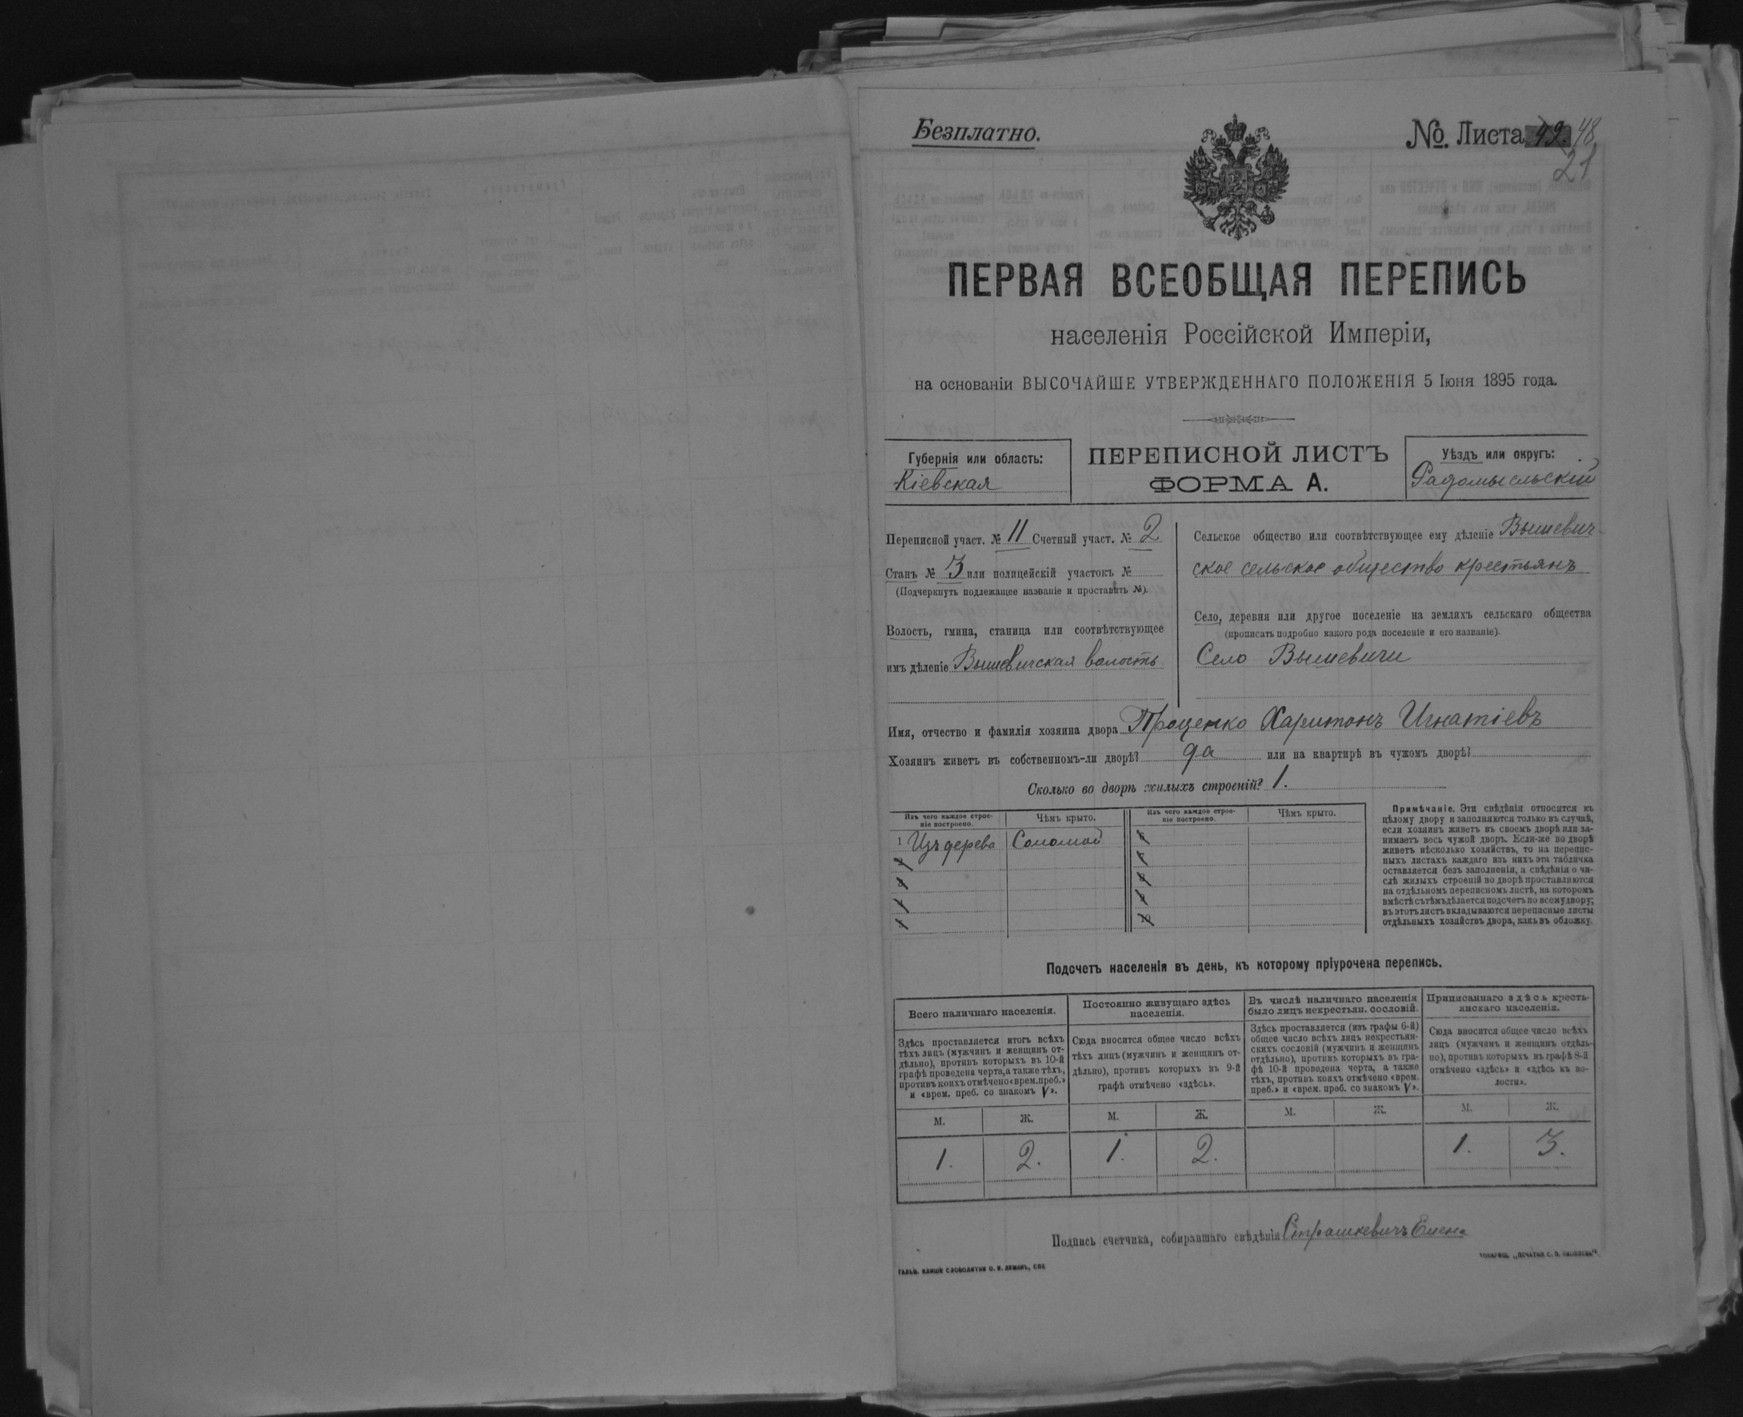 Безплатно.
№ Листа 48
21
ПЕРВАЯ ВСЕОБЩАЯ ПЕРЕПИСЬ
населенія Россійской Имперіи,
на основаніи ВЫСОЧАЙШЕ УТВЕРЖДЕННАГО ПОЛОЖЕНІЯ 5 Іюня 1895 года.
Губернія или область:
Кіевская
ПЕРЕПИСНОЙ ЛИСТЪ
ФОРМА А.
Уѣздъ или округъ:
Радомысльскій
Переписной участ. № 11 Счетный участ. № 2
Станъ № 3 или полицейскій участокъ №
(Подчеркнуть подлежащее названіе и проставить №).
Волость, гмина, станица или соотвѣтствующее
имъ дѣленіе Вышевичская волость
Сельское общество или соотвѣтствующее ему дѣленіе Вышевич-
ское сельское общество крестьянъ
Село, деревня или другое поселеніе на земляхъ сельскаго общества
(прописать подробно какого рода поселеніе и его названіе).
Село Вышевичи
Имя, отчество и фамилія хозяина двора Проценко Харитонъ Игнатіевъ
Хозяинъ живетъ въ собственномъ-ли дворѣ? да или на квартирѣ въ чужомъ дворѣ?
Сколько во дворѣ жилыхъ строеній? 1.
Изъ чего каждое строе-
ніе построено.
Чѣмъ крыто.
Изъ чего каждое строе-
ніе построено.
Чѣмъ крыто.
1 Изъ дерева Соломой
Примѣчаніе. Эти свѣдѣнія относятся къ
цѣлому двору и заполняются только въ случаѣ,
если хозяинъ живетъ въ своемъ дворѣ или за-
нимаетъ весь чужой дворъ. Если-же во дворѣ
живетъ нѣсколько хозяйствъ, то на перепис-
ныхъ листахъ каждаго изъ нихъ эта табличка
оставляется безъ заполненія, а свѣдѣнія о чи-
слѣ жилыхъ строеній во дворѣ проставляются
на отдѣльномъ переписномъ листѣ, на которомъ
вмѣстѣ съ тѣмъ дѣлается подсчетъ по всему двору;
въ этотъ листъ вкладываются переписные листы
отдѣльныхъ хозяйствъ двора, какъ въ обложку.
Подсчетъ населенія въ день, къ которому пріурочена перепись.
Всего наличнаго населенія.
Здѣсь проставляется итогъ всѣхъ
тѣхъ лицъ (мужчинъ и женщинъ от-
дѣльно), противъ которыхъ въ 10-й
графѣ проведена черта, а также тѣхъ,
противъ коихъ отмѣчено «врем. преб.»
и «врем. преб. со знакомъ V».
Постоянно живущаго здѣсь
населенія.
Сюда вносится общее число всѣхъ
тѣхъ лицъ (мужчинъ и женщинъ от-
дѣльно), противъ которыхъ въ 9-й
графѣ отмѣчено «здѣсь».
Въ числѣ наличнаго населенія
было лицъ некрестьян. сословій.
Здѣсь проставляется (изъ графы 6-й)
общее число всѣхъ лицъ некрестьян-
скихъ сословій (мужчинъ и женщинъ
отдѣльно), противъ которыхъ въ гра-
фѣ 10-й проведена черта, а также
тѣхъ, противъ коихъ отмѣчено «врем.
преб.» и «врем. преб. со знакомъ V».
Приписаннаго здѣсь кресть-
янскаго населенія.
Сюда вносится общее число всѣхъ
лицъ (мужчинъ и женщинъ отдѣль-
но), противъ которыхъ въ графѣ 8-й
отмѣчено «здѣсь» и «здѣсь въ во-
лости».
М. Ж. М. Ж. М. Ж. М. Ж.
1. 2. 1. 2. 1. 3.
Подпись счетчика, собиравшаго свѣдѣнія Страшкевичъ